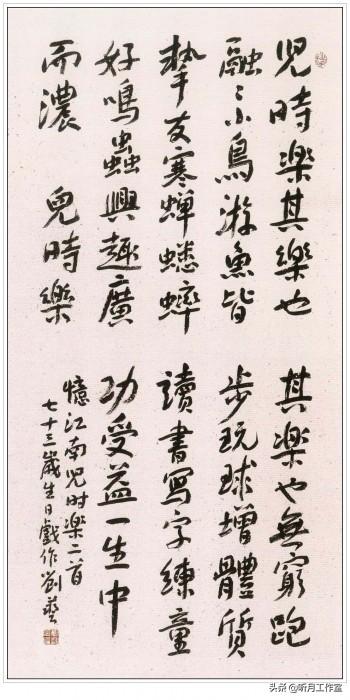 兒時樂其樂也
融々小鳥游魚皆
摯友寒蟬蟋蟀
好鳴蟲興趣廣
而濃 兒時樂
其樂也無窮跑
步玩球增體質
讀書寫字練童
功受益一生中
憶江南兒时樂二首
七十三歲生日戲作劉藝
头条 @听月工作室